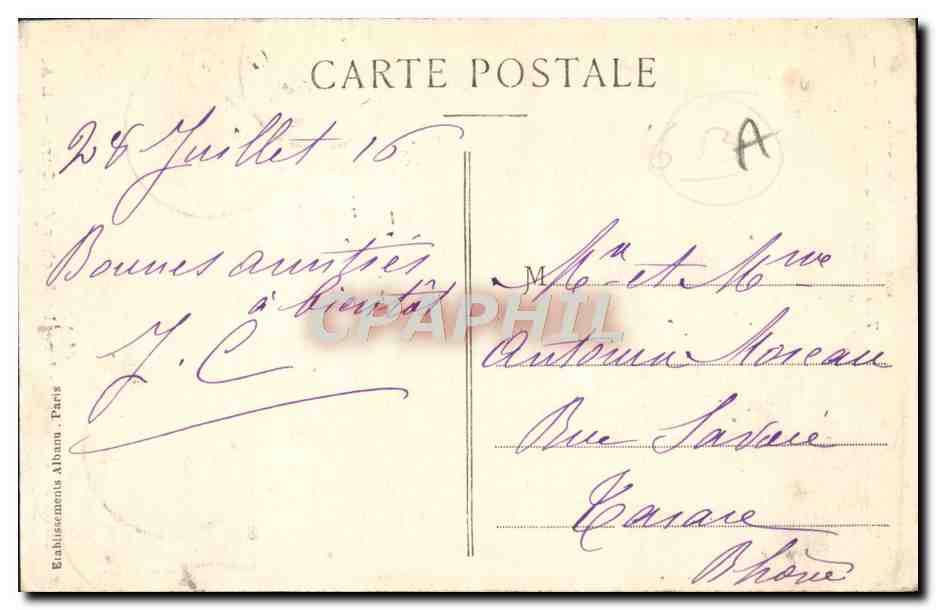 CARTE POSTALE
28 Juillet 16
Bonnes amitiés
à bientôt
J. C
Etablissements Albanu. Paris
A
M Mr et Mme
Antonin Moreau
Rue Savoie
Tarare
Rhône
CPAPHIL